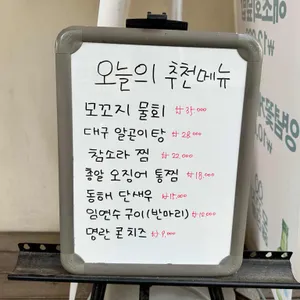 오늘의 추천메뉴
모꼬지 물회 ₩35.000
대구 알곤이탕 ₩28.000
참소라 찜 ₩22.000
총알 오징어 통찜 ₩18.000
동해 단새우 ₩15.000
임연수구이(반마리) ₩10.000
명란 콘치즈 ₩9.000